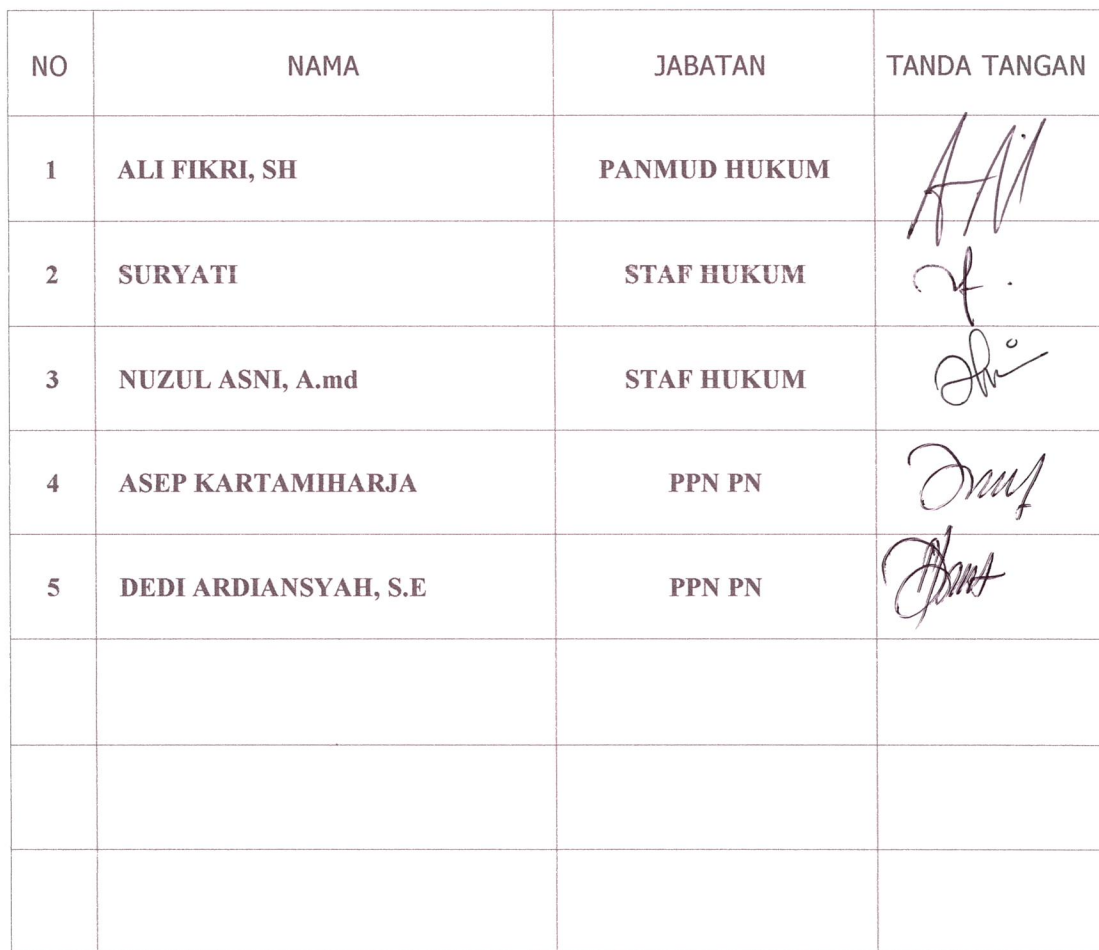 NO NAMA JABATAN TANDA TANGAN
1 ALI FIKRI, SH PANMUD HUKUM
2 SURYATI STAF HUKUM
3 NUZUL ASNI, A.md STAF HUKUM
4 ASEP KARTAMIHARJA PPN PN
5 DEDI ARDIANSYAH, S.E PPN PN